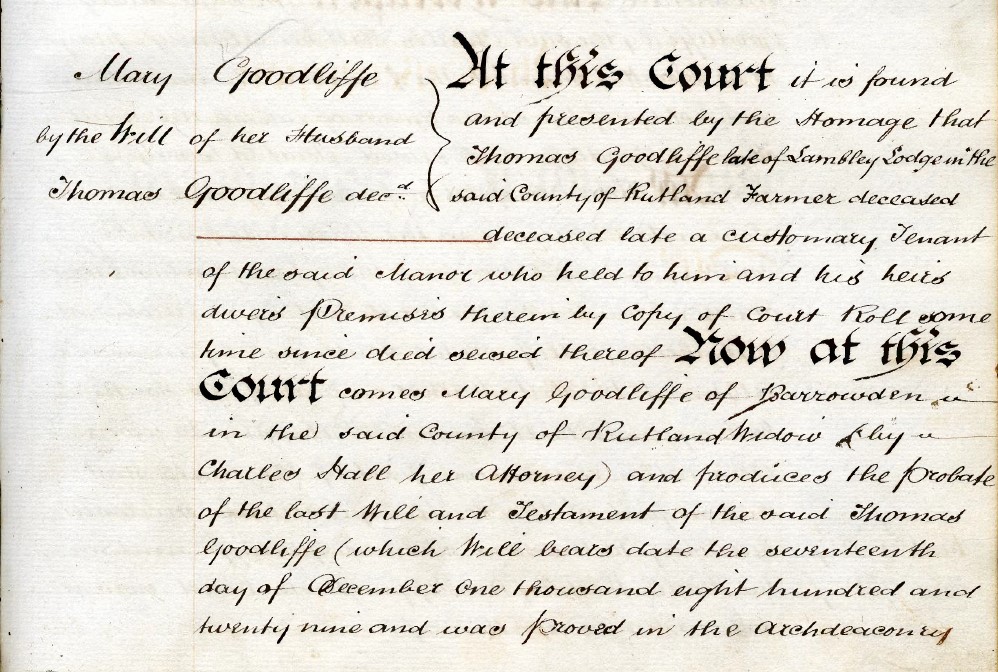 Mary Goodliffe
by the Will of her Husband
Thomas Goodliffe decd.
At this Court it is found
and presented by the Homage that
Thomas Goodliffe late of Lambley Lodge in the
said County of Rutland Farmer deceased
deceased late a customary Tenant
of the said Manor who held to him and his heirs
divers Premises therein by Copy of Court Roll some
time since died seised thereof Now at this
Court comes Mary Goodliffe of Barrowden
in the said County of Rutland Widow (by
Charles Hall her Attorney) and produces the Probate
of the last Will and Testament of the said Thomas
Goodliffe (which Will bears date the seventeenth
day of December One thousand eight hundred and
twenty nine and was proved in the Archdeaconry